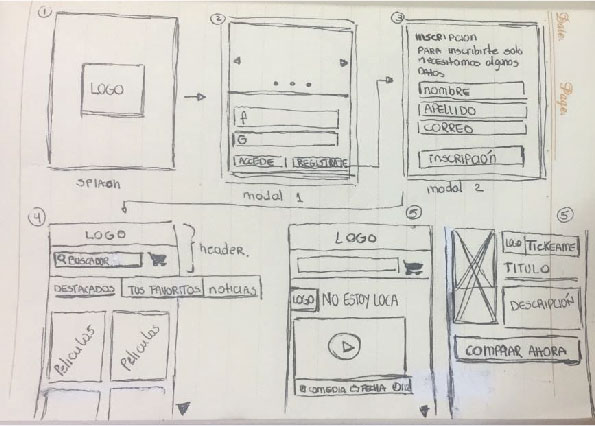 1
LOGO
SPLASH
2
f
G
ACCEDE
REGISTRATE
modal 1
3
INSCRIPCION
PARA inscribirte solo
necesitamos algunos
DATOS
nombre
APELLIDO
CORREO
inscripción
modal 2
Date
Page
4
LOGO
BUSCADOR
header.
DESTACADOS
TUS FAVORITOS
NOTICIAS
Peliculas
Peliculas
5
LOGO
LOGO
NO ESTOY LOCA
COMEDIA
FECHA
5
LOGO
TICKEAME
TITULO
DESCRIPCIÓN
COMPRAR AHORA